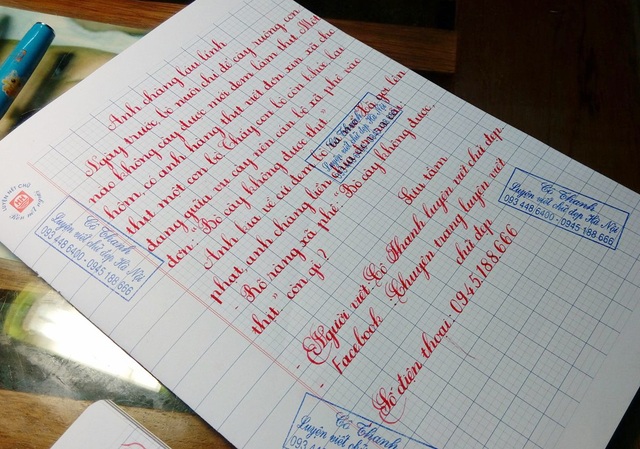 Anh chàng láu lỉnh
Ngày trước bò nuôi chỉ để cày ruộng, con
nào không cày được mới đem làm thịt. Một
hôm, có anh hàng thịt viết đơn xin xã cho
thịt một con bò. Thấy con bò còn khỏe lại
đang giữa vụ cày nên cán bộ xã phê vào
đơn: "Bò cày không được thịt"
Anh kia cứ
phạt, anh chàng liền
- Bò ràng xã phê: "Bò cày không được,
thịt" còn gì?
Sưu tầm
- Người viết: Cô Thanh luyện viết chữ đẹp
- Facebook: Chuyên trang luyện viết
chữ đẹp
Số điện thoại: 0945.188.666
Cô Thanh
Luyện viết chữ đẹp Hà Nội
093 448 6400 - 0945 188 666
Cô Thanh
Luyện viết chữ đẹp Hà Nội
093 448 6400 - 0945 188 666
Cô Thanh
Luyện viết chữ đẹp Hà Nội
Cô Thanh
Luyện viết chữ đẹp Hà Nội
093 448 6400 - 0945 188 666
LUYỆN VIẾT CHỮ